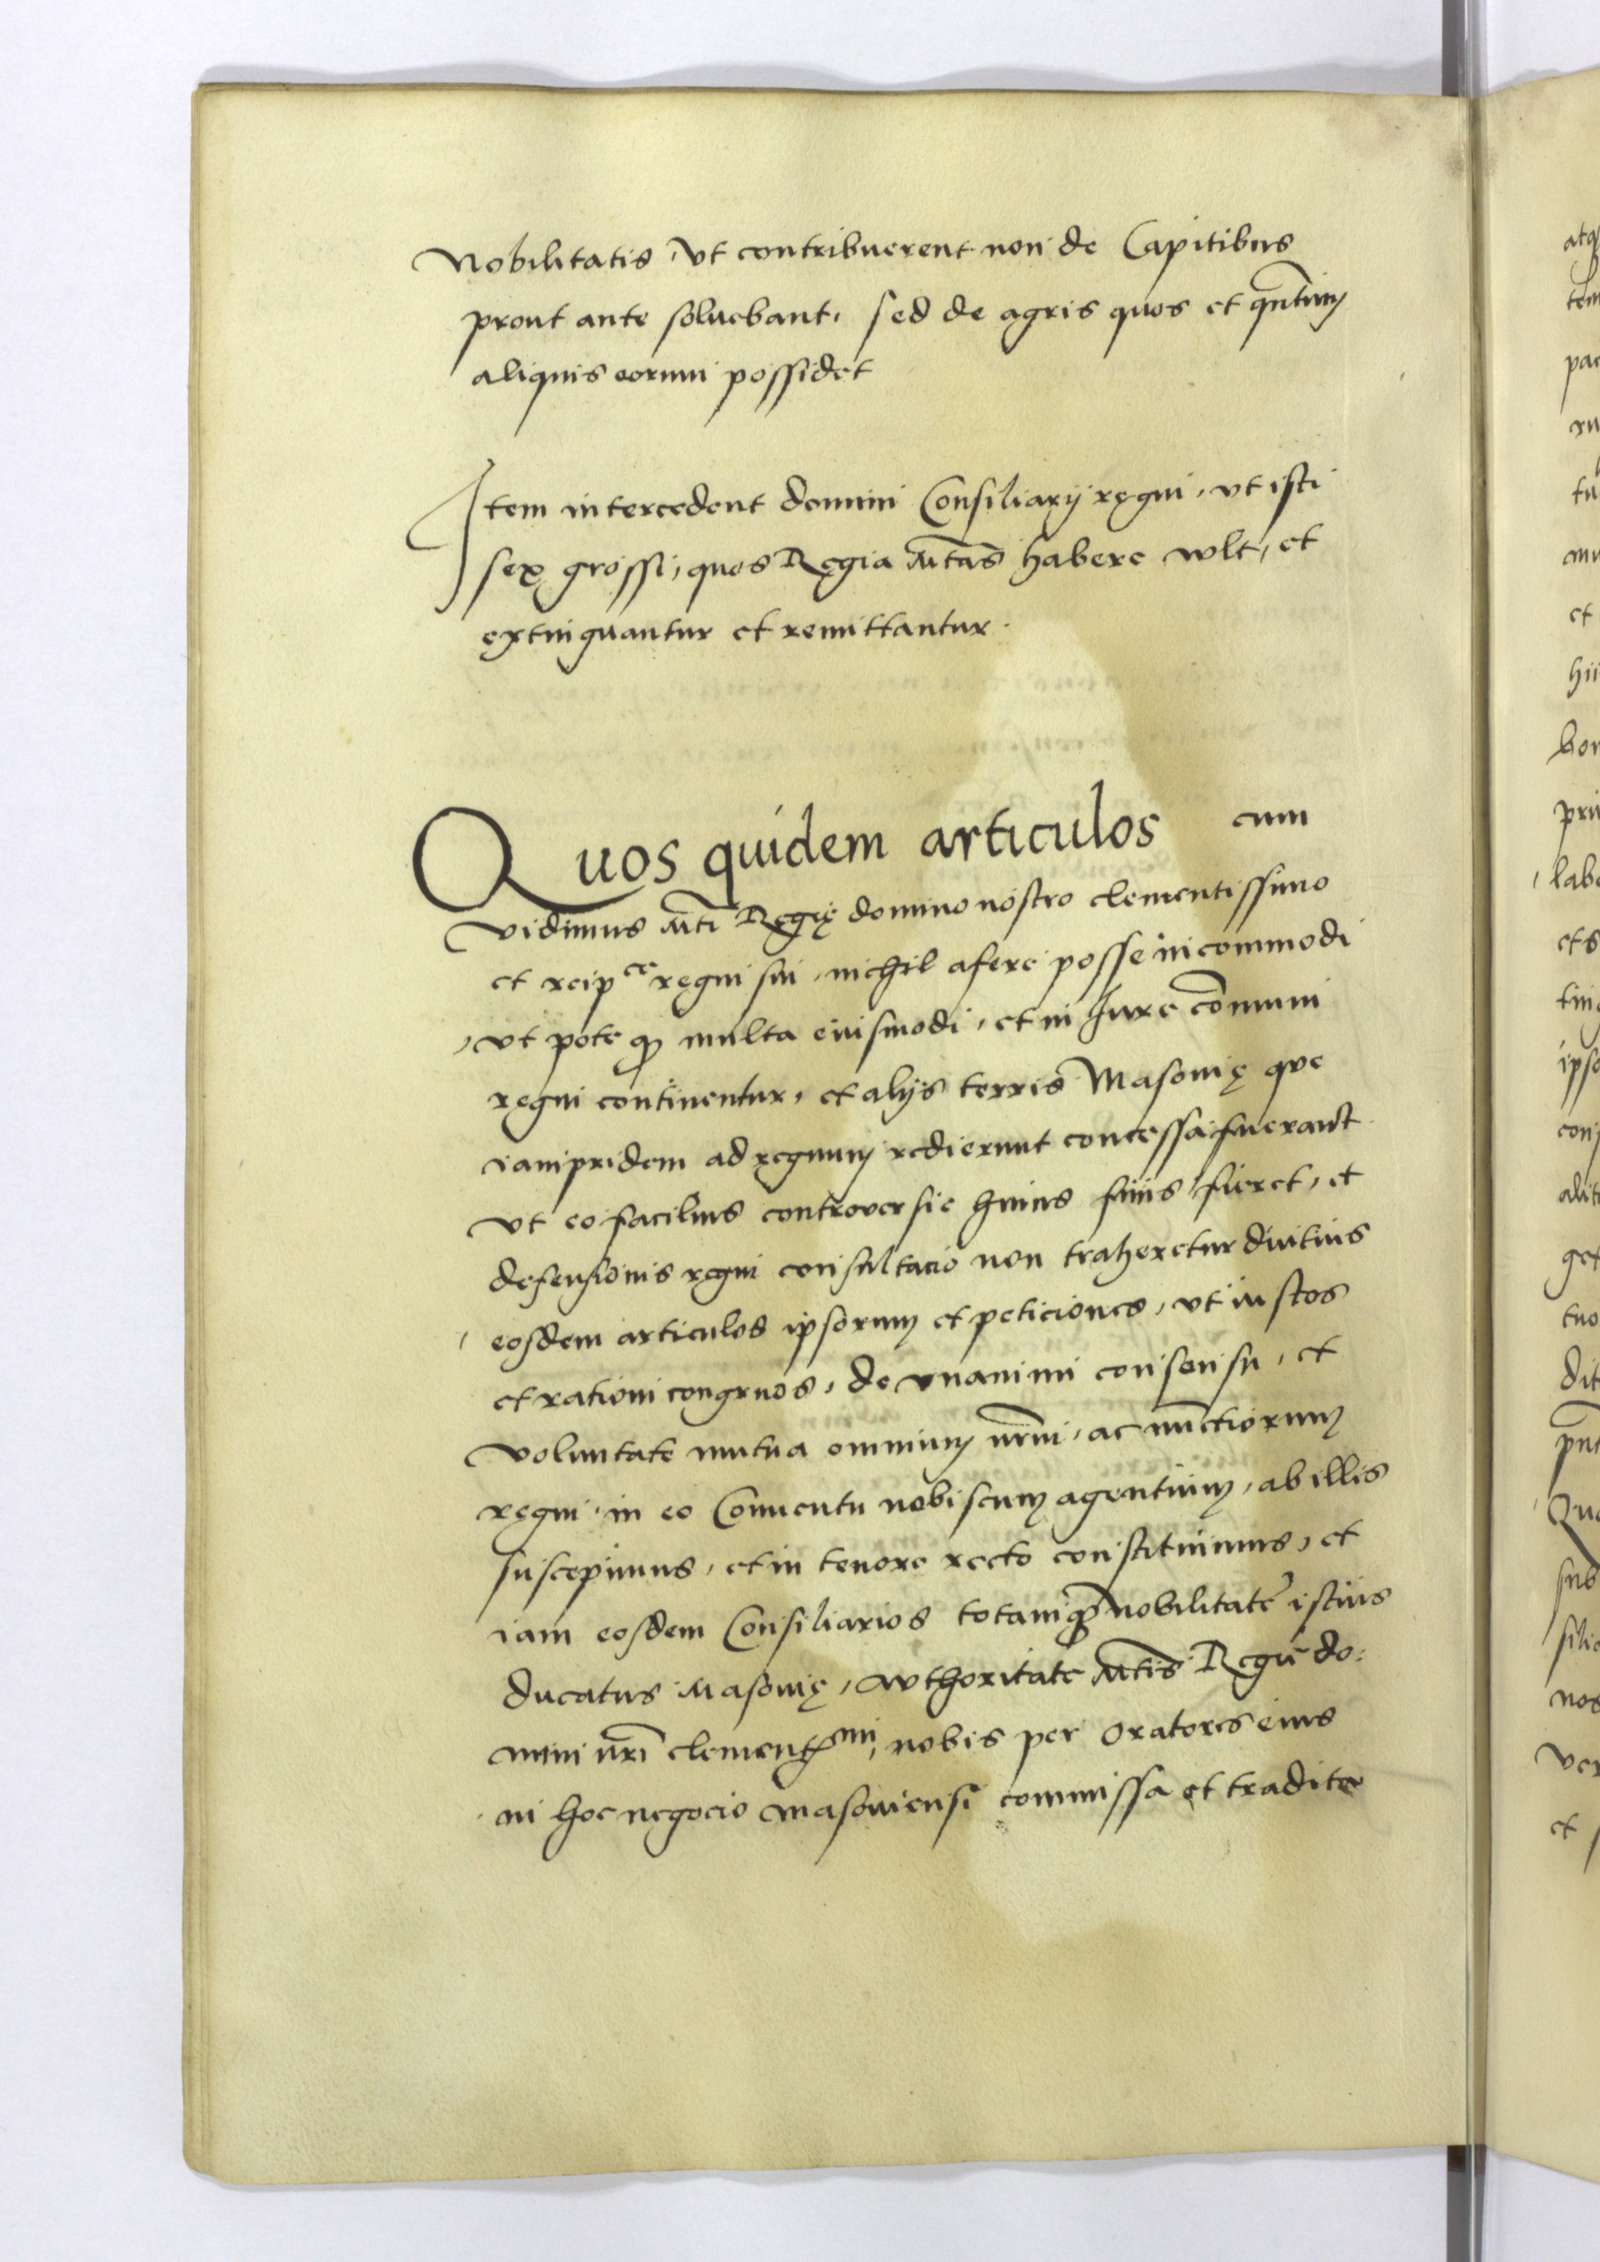 Nobilitatis, vt contribuerent non de Capitibus
prout ante soluebant, sed de agris quos et qñtum
aliquis eorum possidet
Item intercedent domini Consiliarij regni, vt isti
sex grossi, quos Regia Mtas habere wlt, et
extinguantur et remittantur.
Quos quidem articulos cum
vidimus Mti Regię domino nostro clementissimo
et reip ce regni sui, nichil afere posse incommodi
, vt pote quod multa eiusmodi, et in Jure cōmuni
regni continentur, et alijs terris Masovię que
iampridem ad regnum redierunt concessa fuerant
vt eo facilius controversie huius finis fieret, et
defensionis regni consultacio non traheretur diutius
, eosdem articulos ipsorum et peticiones, vt iustos
et rationi congruos, de vnanimi consensu, et
voluntate mutua omnium nr̄m, ac nunctiorum
regni, in eo Conventu nobiscum agentium, ab illis
suscepimus, et in tenore recto constituimus, et
iam eosdem Consiliarios totamque nobilitatē istius
ducatus Masovię, authoritate Mtis Regię do:
mini nrī clementmi, nobis per Oratores eius
in hoc negocio masoviensi commissa et tradita
atq
tem
pac
et
hii
bon
pri
, labo
ets
ipso
conf
alit
get
tuo
dit
Qua
sub
silia
nos
ver
et